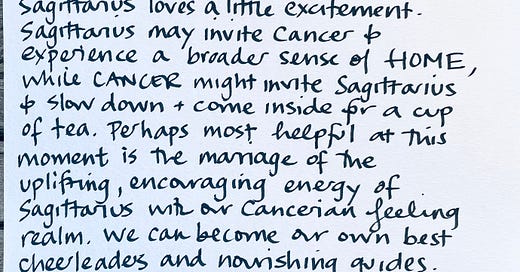 Sagittarius loves a little excitement.
Sagittarius may invite Cancer to
experience a broader sense of HOME,
while CANCER might invite Sagittarius
to slow down + come inside for a cup
of tea. Perhaps most helpful at this
moment is the marriage of the
uplifting, encouraging energy of
Sagittarius with our Cancerian feeling
realm. We can become our own best
cheerleaders and nourishing guides.